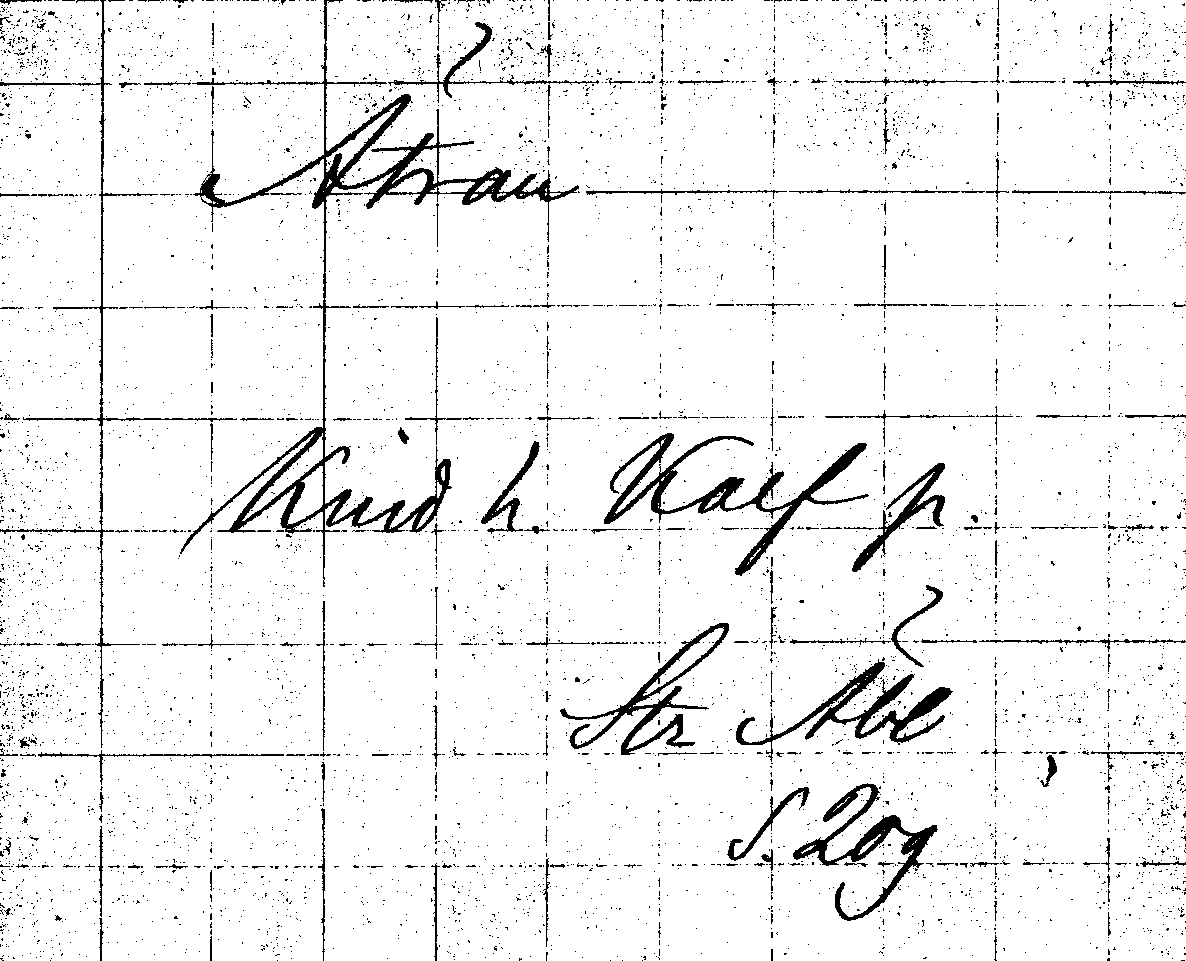 Ätran
Kind h. Kalf p.
Str Äbl
S. 209